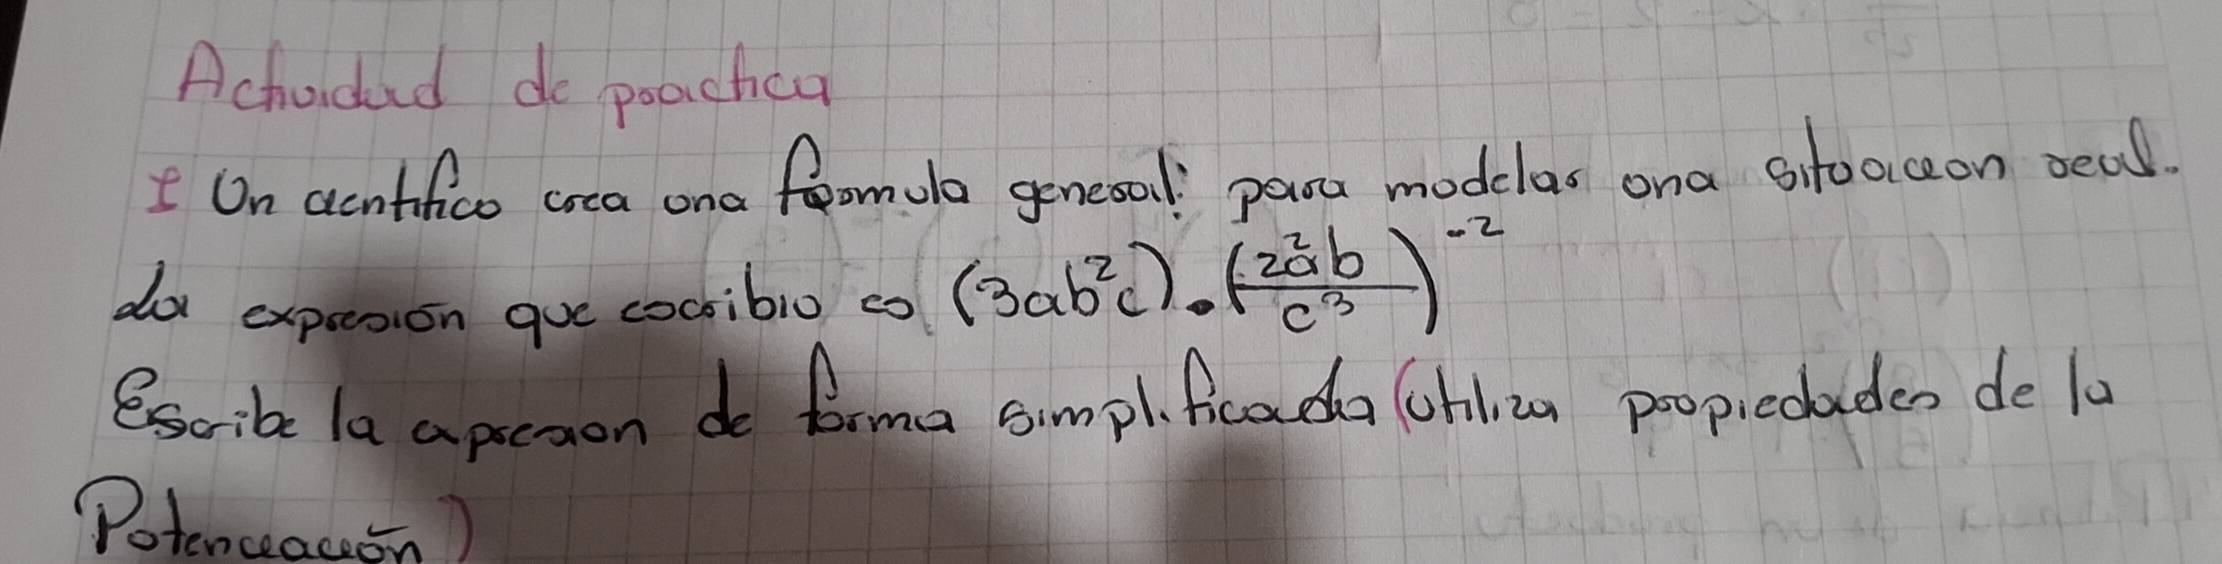 Actividad de practica
I Un cientifico crea una formula general: para modelar una situacion real.
La expresión que escribio es (3ab²c) · (2a²b / c³)⁻²
Escribe la expresion de forma simplificada (utiliza propiedades de la
Potenciación)